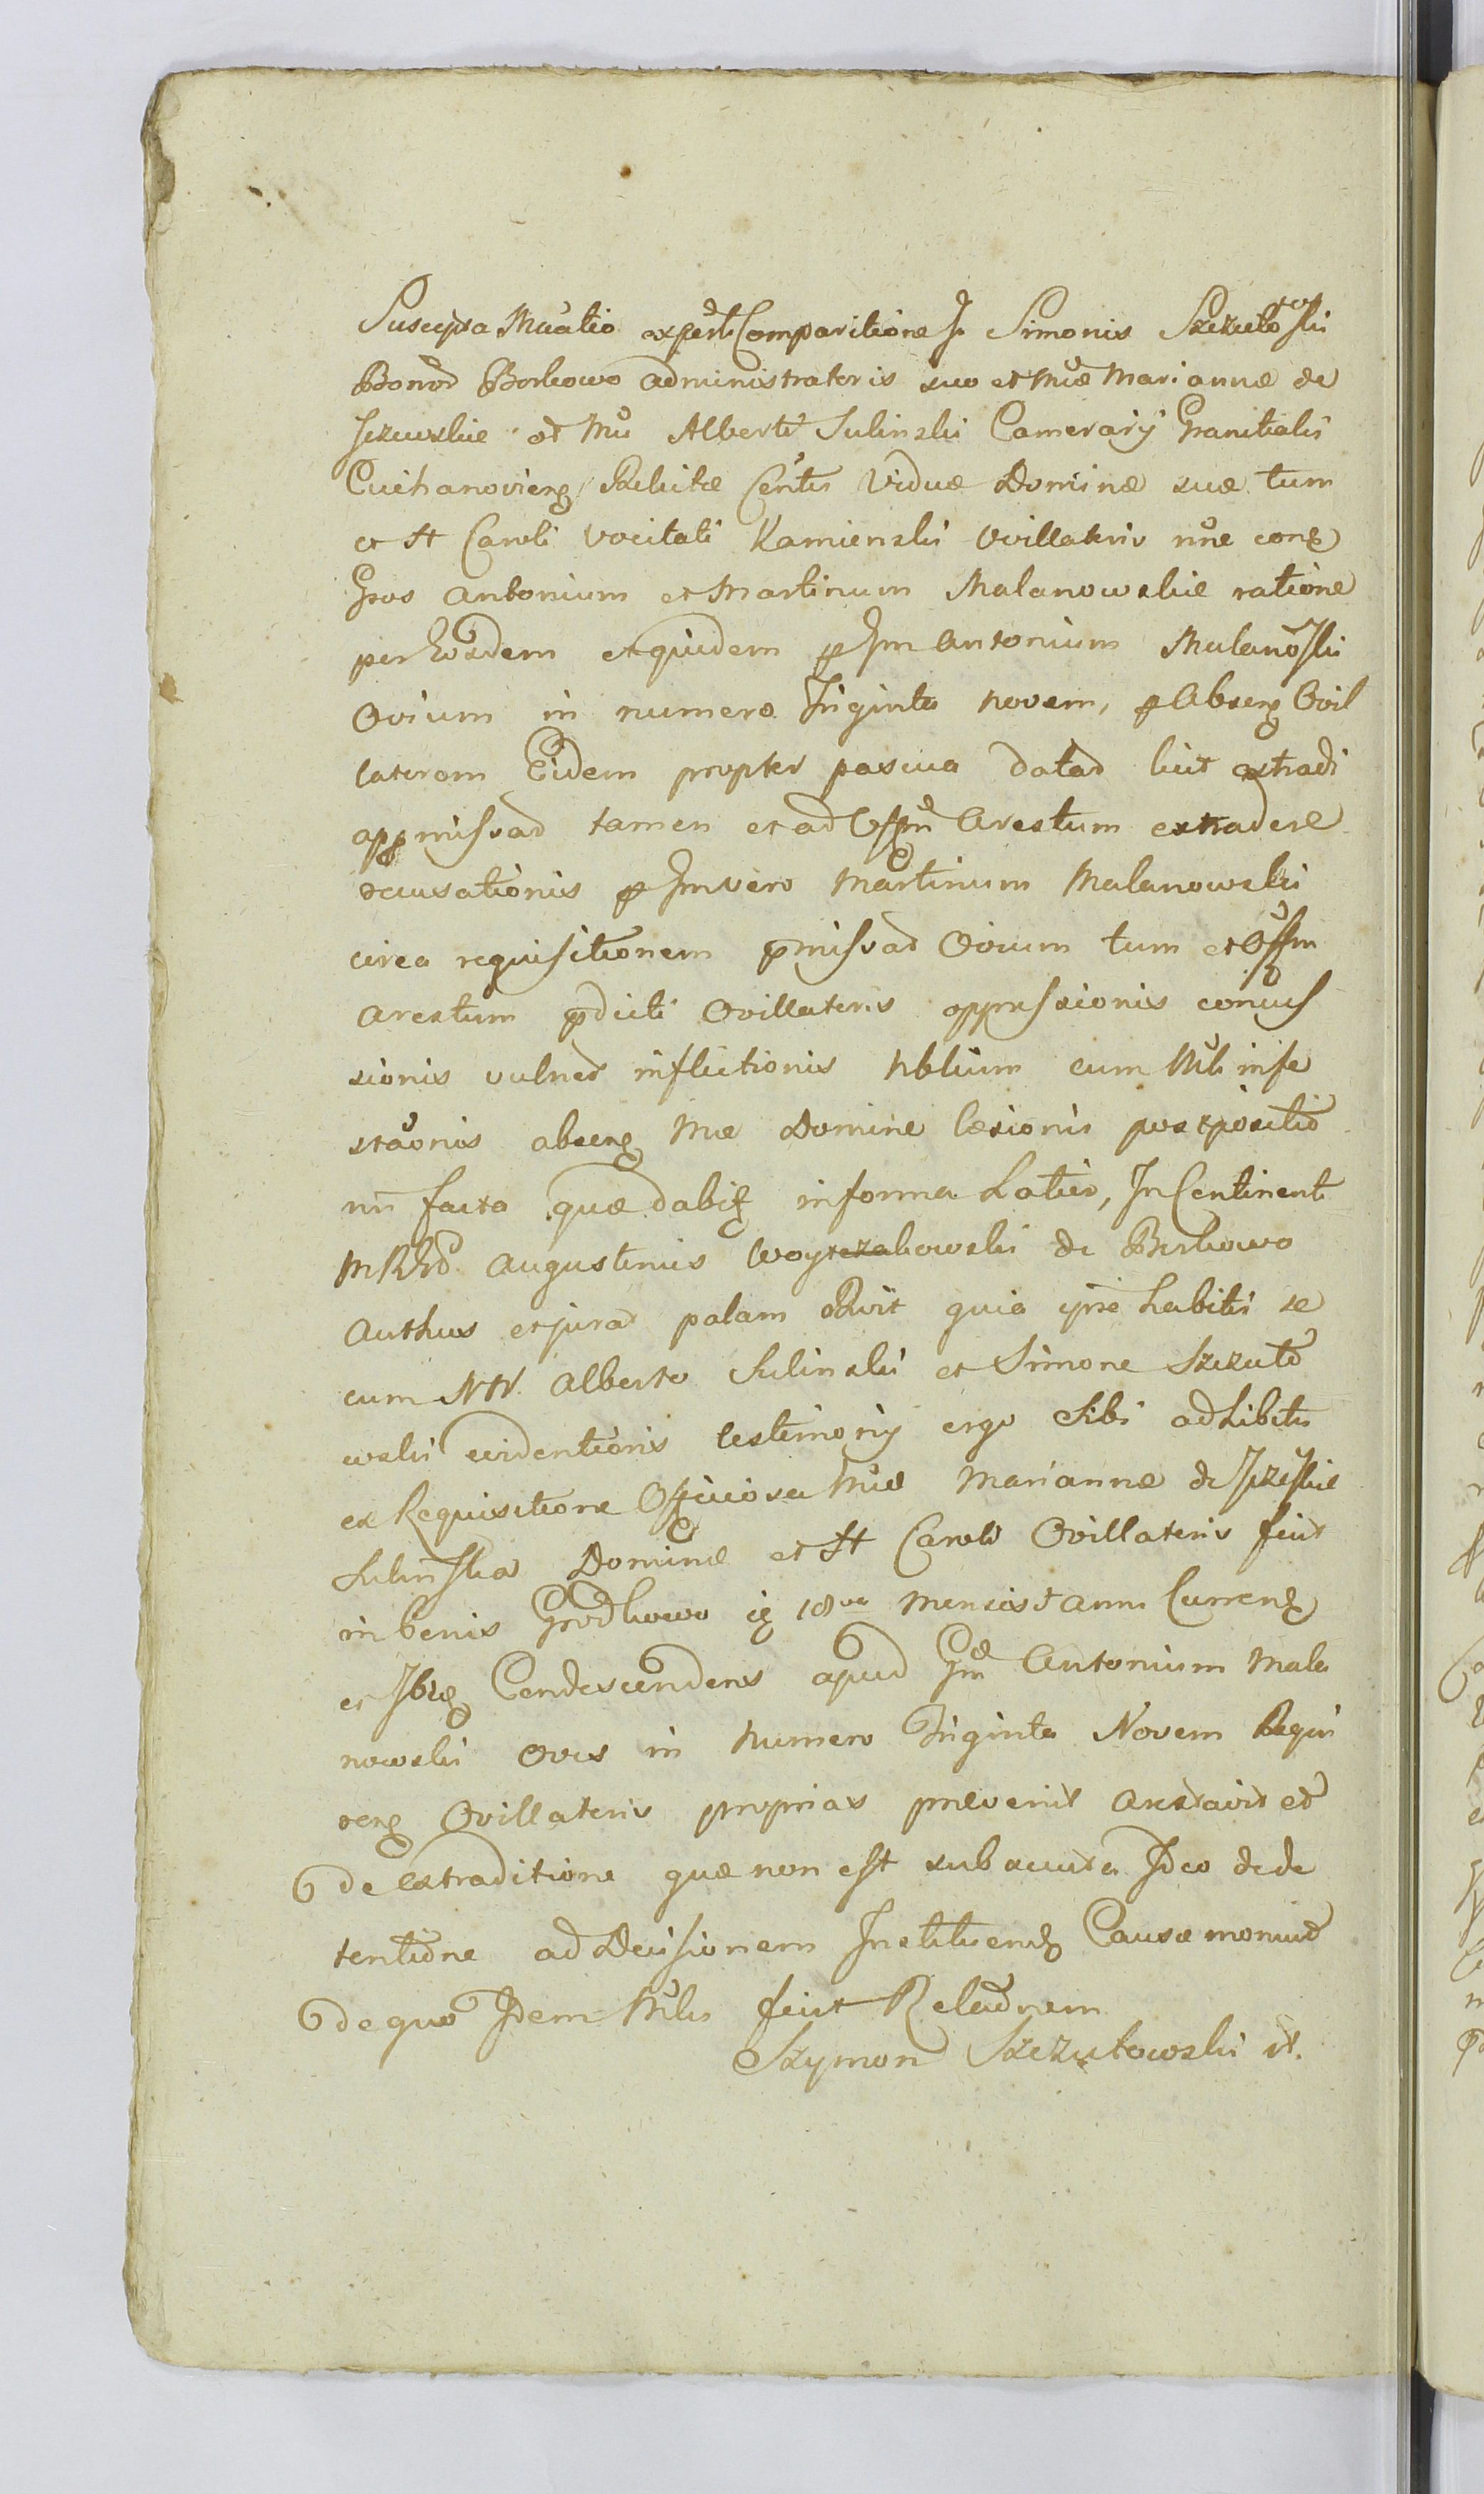 Suscepta Mnatio ex perli Comparitione G. Simonis Szczutowski
Bonor Borkowo administratoris suo et Mcæ Mariannæ de
Jezewskie et Mci Alberti Sulinski Camerarÿ Granitialis
Ciechanovieng Relictæ Contis Viduæ Dominæ suæ tum
et H Caroli vocitati Kamienski Ovillatoris nne cong
Gros Antonium et Martinum Malanowskie ratione
per Eosdem et quidem p Gm Antonium Malanowski
Ovium in numero Triginta novem, p Abseng Ovil
latorem Eidem propter pascua datar licit extradi
appmissar tamen et ad Offm Arestum extradere
recusationis p Gm vero Martinum Malanowski
circa requisitionem pmissar Ovium tum et Offm
Arestum pdicti Ovillatoris oppressionis concus
sionis vulner inflictionis nblium cum Mli infe
staonis abseng Mcæ Dominæ læsionis postpositio
nn facta quæ dabit in forma Latior, In Continenti
Mlis Rgni Augustinus Woyczakowski de Borkowo
Authus et jurat palam rcvit quia ipse habitis se
cum NN. Alberto Sulinski et Simone Szczuto
wski evidentioris testimonÿ ergo Sibi adhibitis
ex Requisitione Officiosa Mcæ Mariannæ de Jezewskie
Sulinska Dominæ et H Caroli Ovillatoris fuit
in bonis Grodkowo ig 18va Mensis et anni Curreng
et Ibig Condescendens apud Gm Antonium Mala
nowski oves in Numero Triginta Novem Requi
reng Ovillatoris proprias prævenit arestavit et
de extraditione quæ non est subsecuta Ideo de de
tentione ad Decisionem Instituendg Causæ monuit
de quo Idem Mlis fecit Relaonem
Szymon Szczutowski